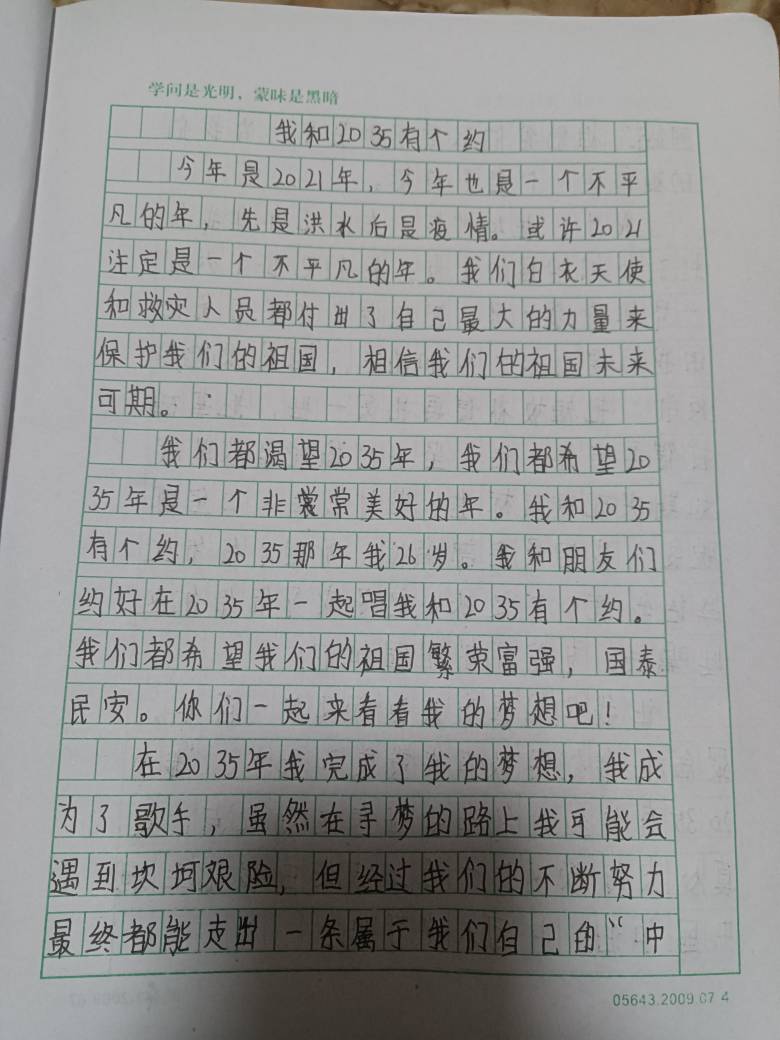 学问是光明，蒙昧是黑暗
我和2035有个约
今年是2021年，今年也是一个不平
凡的年，先是洪水后是疫情。或许2021
注定是一个不平凡的年。我们白衣天使
和救灾人员都付出了自己最大的力量来
保护我们的祖国，相信我们的祖国未来
可期。
我们都渴望2035年，我们都希望20
35年是一个非常美好的年。我和2035
有个约，2035那年我26岁。我和朋友们
约好在2035年一起唱我和2035有个约。
我们都希望我们的祖国繁荣富强，国泰
民安。你们一起来看看我的梦想吧！
在2035年我完成了我的梦想，我成
为了歌手，虽然在寻梦的路上我可能会
遇到坎坷艰险，但经过我们的不断努力
最终都能走出一条属于我们自己的“中
05643.2009.07 4